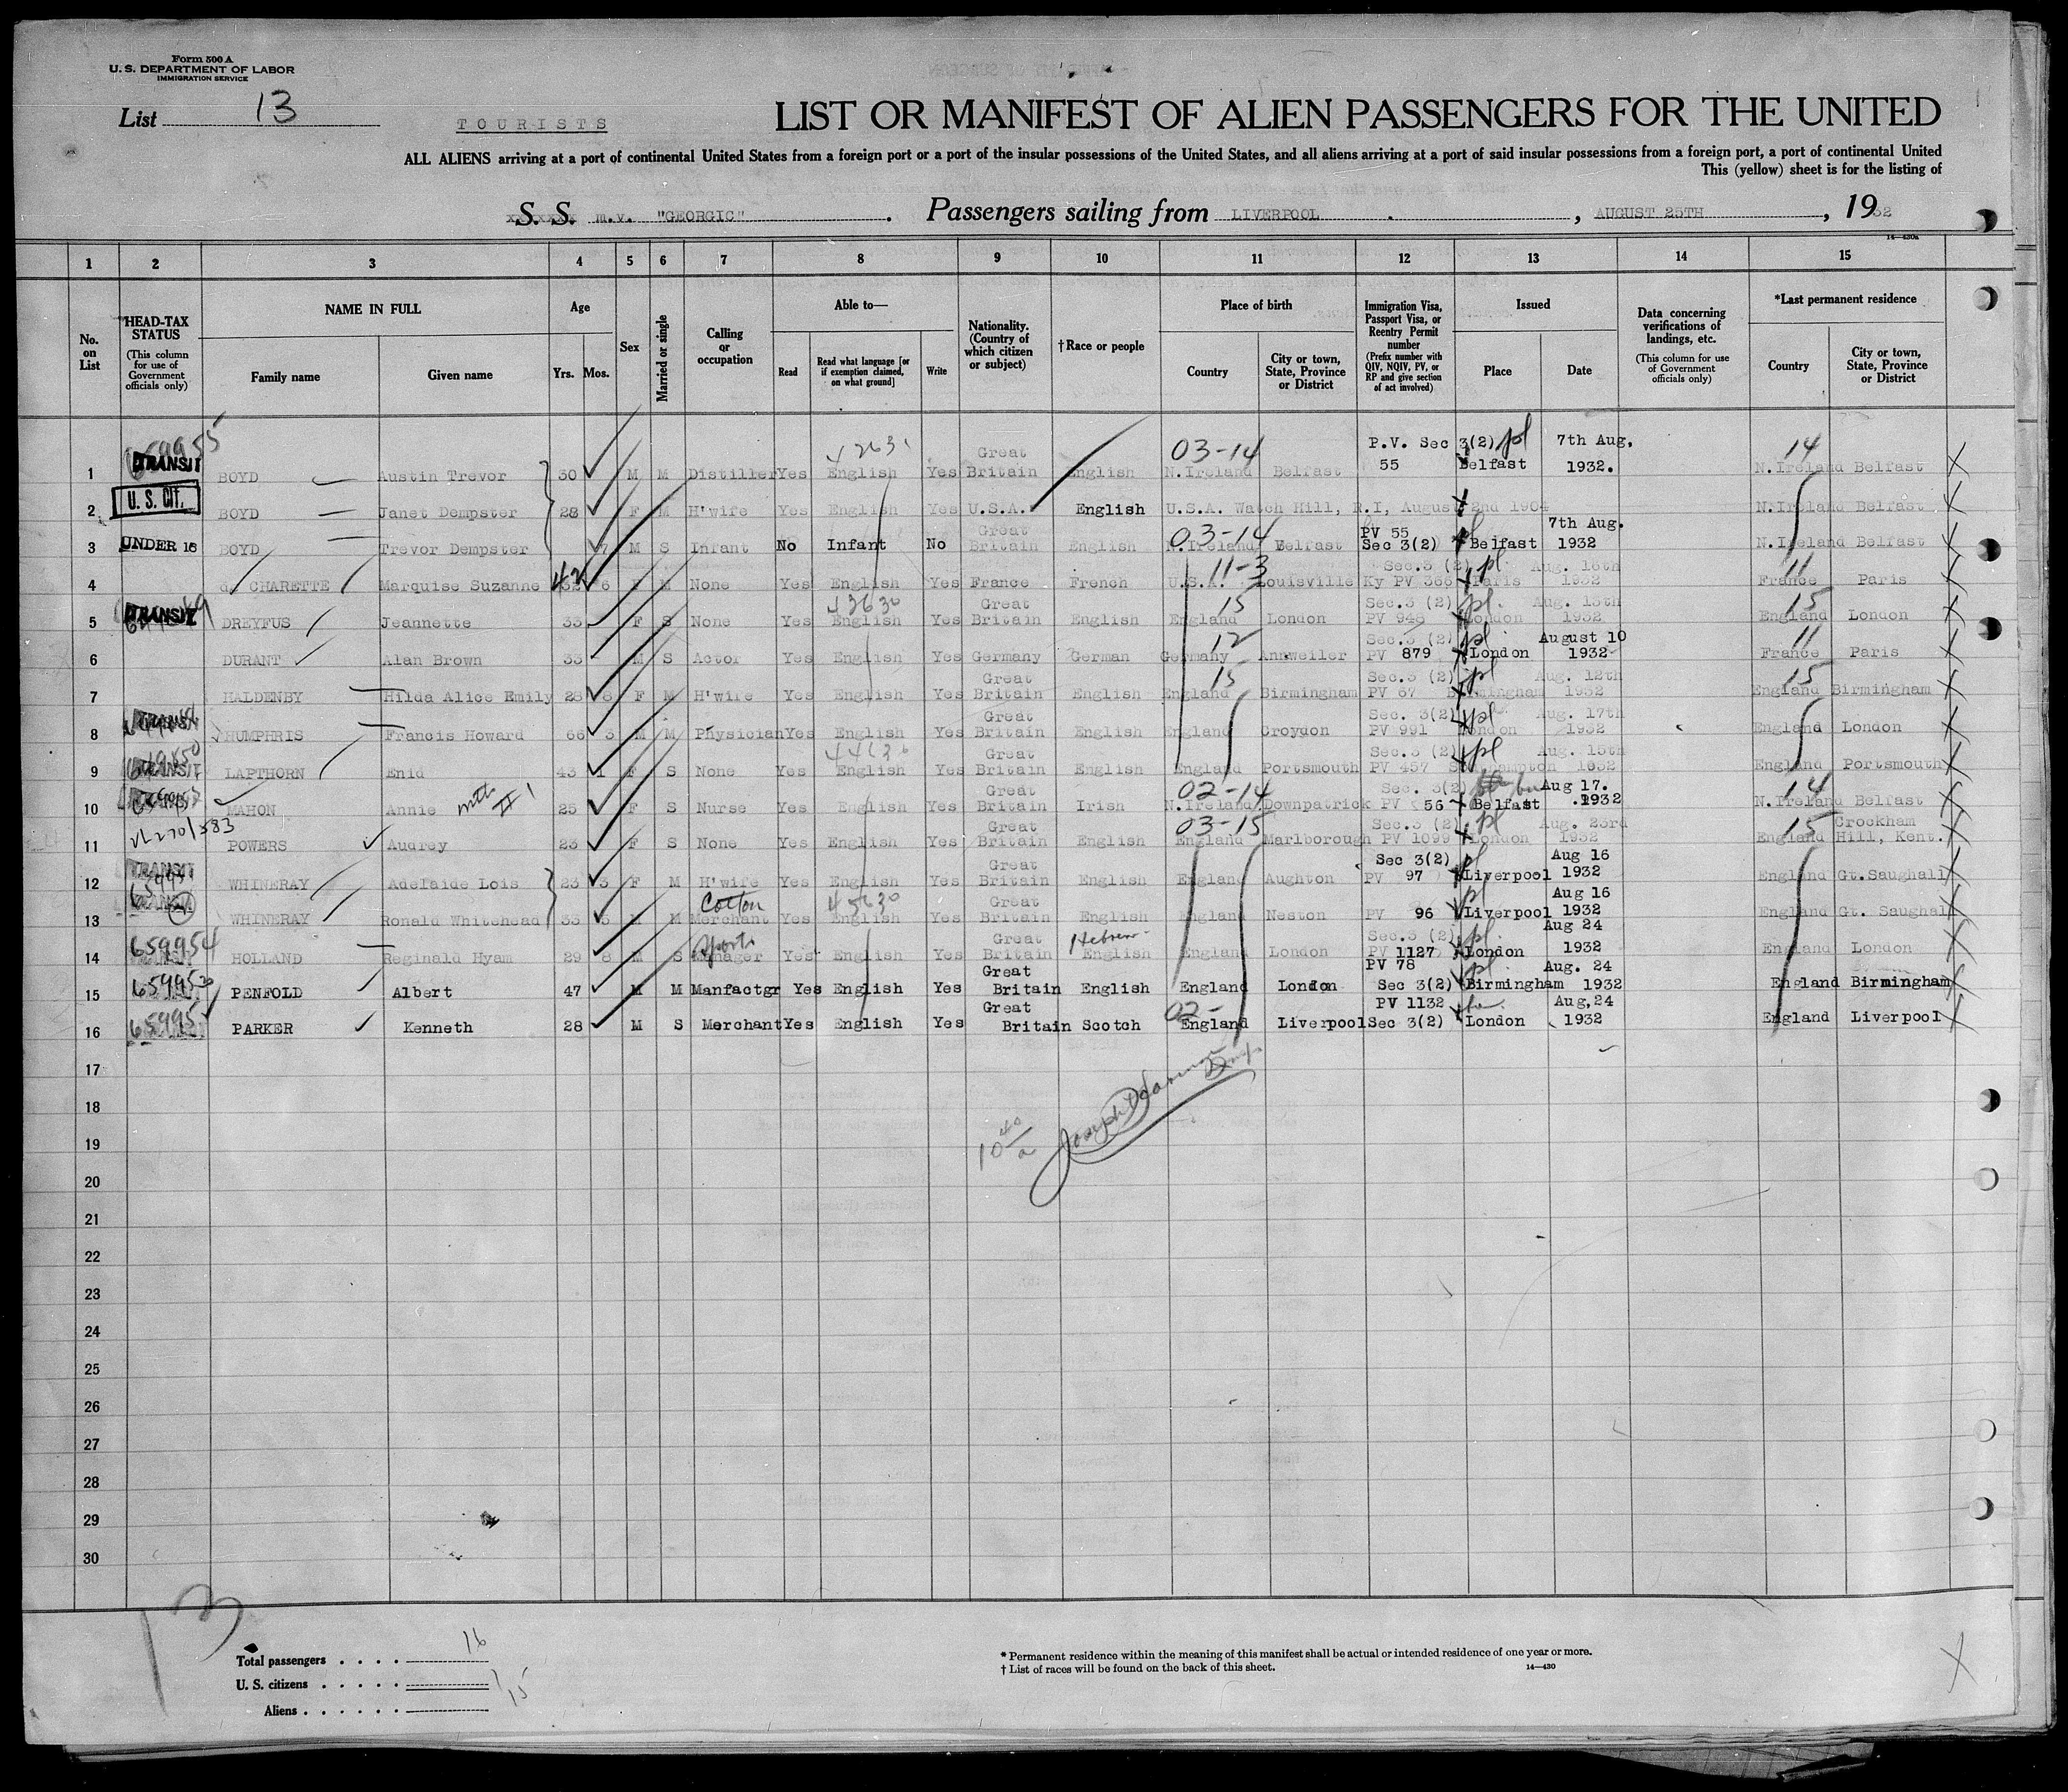 Form 500 A
U. S. DEPARTMENT OF LABOR
IMMIGRATION SERVICE
List 13
TOURISTS
LIST OR MANIFEST OF ALIEN PASSENGERS FOR THE UNITED
ALL ALIENS arriving at a port of continental United States from a foreign port or a port of the insular possessions of the United States, and all aliens arriving at a port of said insular possessions from a foreign port, a port of continental United
This (yellow) sheet is for the listing of
S. S. m.v. "GEORGIC" . Passengers sailing from LIVERPOOL , AUGUST 25TH , 1932
14—430a
1 2 3 4 5 6 7 8 9 10 11 12 13 14 15
No. on List
HEAD-TAX STATUS (This column for use of Government officials only)
NAME IN FULL Family name Given name
Age Yrs. Mos.
Sex
Married or single
Calling or occupation
Able to— Read Read what language [or if exemption claimed, on what ground] Write
Nationality. (Country of which citizen or subject)
†Race or people
Place of birth Country City or town, State, Province or District
Immigration Visa, Passport Visa, or Reentry Permit number (Prefix number with QIV, NQIV, PV, or RP and give section of act involved)
Issued Place Date
Data concerning verifications of landings, etc. (This column for use of Government officials only)
*Last permanent residence Country City or town, State, Province or District
1 TRANSIT BOYD Austin Trevor 30 M M Distiller Yes English Yes Great Britain English 03-14 N.Ireland Belfast P.V. Sec 3(2) 55 Belfast 7th Aug. 1932. 14 N.Ireland Belfast
2 U. S. CIT. BOYD Janet Dempster 28 F M H'wife Yes English Yes U.S.A. English U.S.A. Watch Hill, R.I, August 2nd 1904 N.Ireland Belfast
3 UNDER 16 BOYD Trevor Dempster 7 M S Infant No Infant No Great Britain English 03-14 N.Ireland Belfast PV 55 Sec 3(2) Belfast 7th Aug. 1932 N.Ireland Belfast
4 d. CHARETTE Marquise Suzanne 42 6 F M None Yes English Yes France French 11-3 U.S.A. Louisville Ky Sec.3 (2) PV 366 Paris Aug. 16th 1932 11 France Paris
5 TRANSIT DREYFUS Jeannette 33 F S None Yes English Yes Great Britain English 15 England London Sec.3 (2) PV 948 London Aug. 15th 1932 15 England London
6 DURANT Alan Brown 33 M S Actor Yes English Yes Germany German 12 Germany Annweiler Sec.3 (2) PV 879 London August 10 1932 11 France Paris
7 HALDENBY Hilda Alice Emily 28 8 F M H'wife Yes English Yes Great Britain English 15 England Birmingham Sec.3 (2) PV 67 Birmingham Aug. 12th 1932 15 England Birmingham
8 TRANSIT HUMPHRIS Francis Howard 66 3 M M Physician Yes English Yes Great Britain English England Croydon Sec. 3(2) PV 991 London Aug. 17th 1932 England London
9 TRANSIT LAPTHORN Enid 43 1 F S None Yes English Yes Great Britain English England Portsmouth Sec.3 (2) PV 457 Southampton Aug. 15th 1932 England Portsmouth
10 MAHON Annie 25 F S Nurse Yes English Yes Great Britain Irish 02-14 N.Ireland Downpatrick Sec. 3(2) PV 56 Belfast Aug 17. 1932 14 N.Ireland Belfast
11 POWERS Audrey 23 F S None Yes English Yes Great Britain English 03-15 England Marlborough Sec.3 (2) PV 1099 London Aug. 23rd 1932 15 England Crockham Hill, Kent.
12 TRANSIT WHINERAY Adelaide Lois 23 3 F M H'wife Yes English Yes Great Britain English England Aughton Sec 3(2) PV 97 Liverpool Aug 16 1932 England Gt.Saughall
13 WHINERAY Ronald Whitehead 33 5 M M Cotton Merchant Yes English Yes Great Britain English England Neston PV 96 Liverpool Aug 16 1932 England Gt. Saughall
14 659954 HOLLAND Reginald Hyam 29 8 M S Sports Manager Yes English Yes Great Britain Hebrew English England London Sec.3 (2) PV 1127 London Aug 24 1932 England London
15 PENFOLD Albert 47 M M Manfactgr Yes English Yes Great Britain English England London PV 78 Sec 3(2) Birmingham Aug. 24 1932 England Birmingham
16 PARKER Kenneth 28 M S Merchant Yes English Yes Great Britain Scotch 02- England Liverpool PV 1132 Sec 3(2) London Aug,24 1932 England Liverpool
17
18
19
20
21
22
23
24
25
26
27
28
29
30
13
Total passengers . . . . 16
U. S. citizens . . . . . 1
Aliens . . . . . . 15
* Permanent residence within the meaning of this manifest shall be actual or intended residence of one year or more.
† List of races will be found on the back of this sheet. 14—430